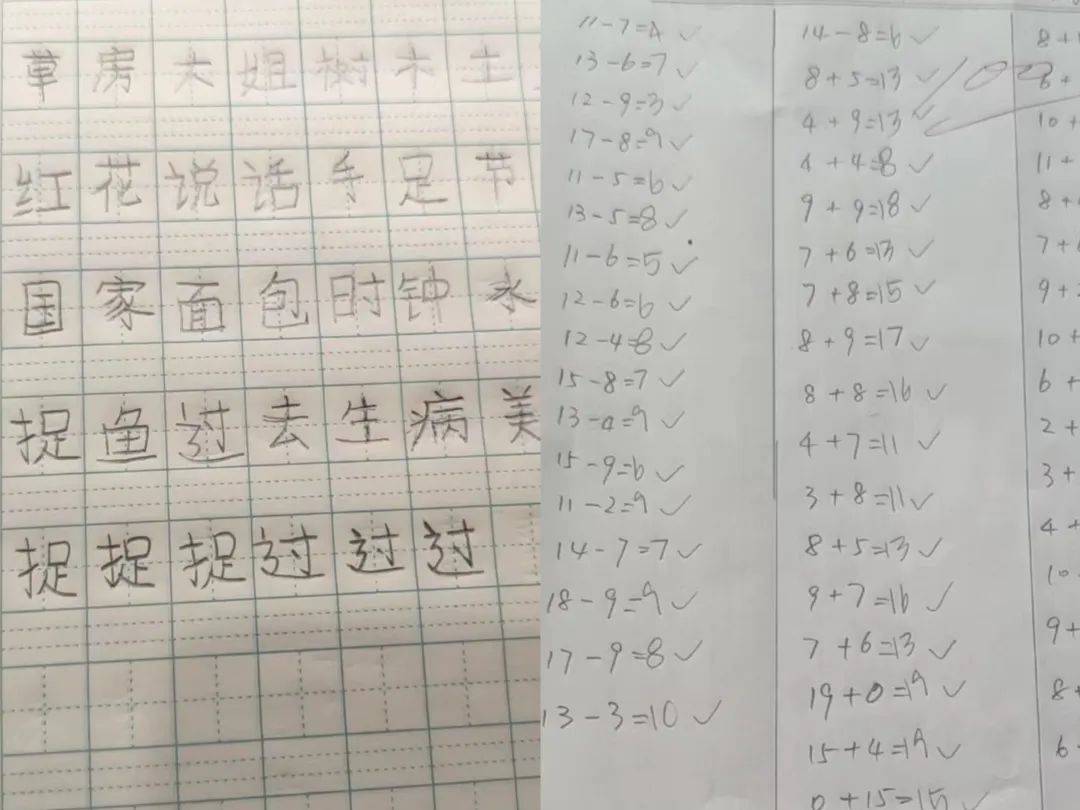 草房大姐树木土
红花说话手足节
国家面包时钟水
捉鱼过去生病美
捉捉捉过过过
11-7=4
13-6=7
12-9=3
17-8=9
11-5=6
13-5=8
11-6=5
12-6=6
12-4=8
15-8=7
13-a=9
15-9=6
11-2=9
14-7=7
18-9=9
17-9=8
13-3=10
14-8=6
8+5=13
4+9=13
4+4=8
9+9=18
7+6=13
7+8=15
8+9=17
8+8=16
4+7=11
3+8=11
8+5=13
9+7=16
7+6=13
19+0=19
15+4=19
0+15=15
100
8+
8+
10+
11+
8+
7+
9+
10+
6+
2+
3+
4+
10
9+
8+
6